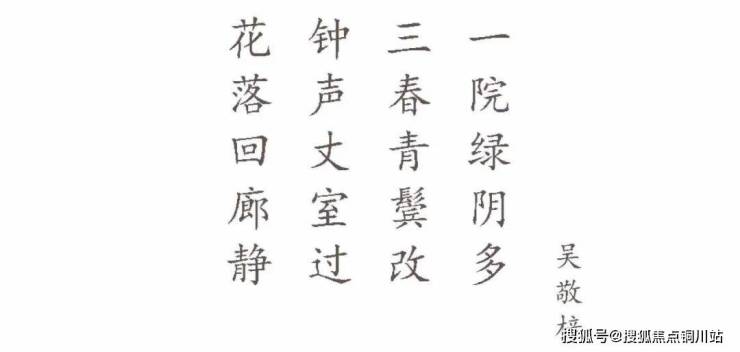 花落回廊静
钟声丈室过
三春青鬓改
一院绿阴多
吴敬梓
搜狐号@搜狐焦点铜川站